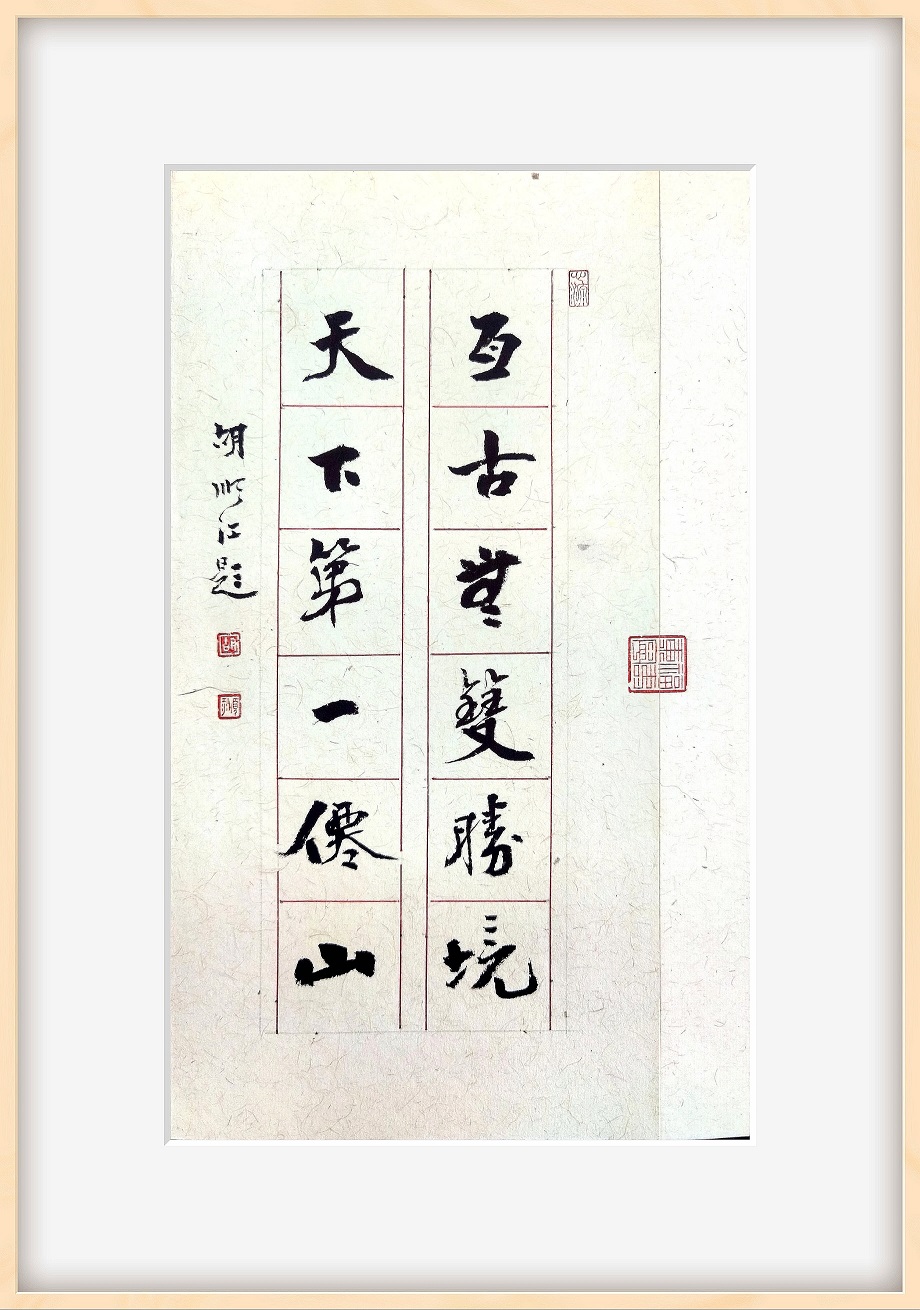 亙古無雙勝境
天下第一僊山
胡順江題